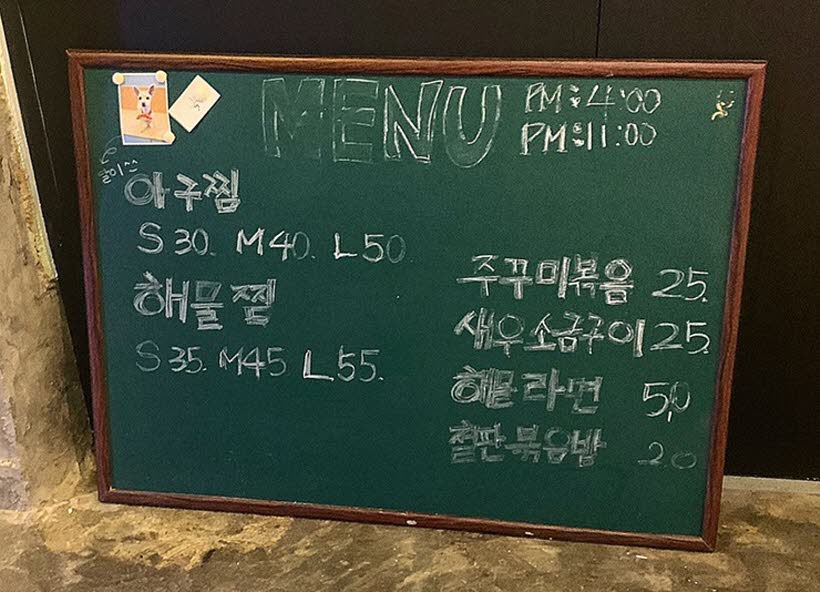 MENU
PM:4:00
PM:11:00
아구찜
S 30. M 40. L 50
해물찜
S 35. M 45 L 55.
주꾸미볶음 25.
새우소금구이 25.
해물라면 5,0
철판볶음밥 2.0